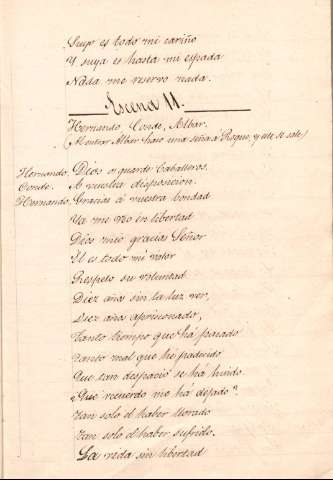 Suyo es todo mi cariño
Y suya es hasta mi espada
Nada me reservo nada.
Escena 11.
Hernando, Conde, Albar.
(Al entrar Albar hace una seña á Roque, y este se sale)
Hernando. Dios os guarde Caballeros.
Conde. A vuestra disposicion.
Hernando. Gracias á vuestra bondad
Ya me veo en libertad
Dios mio gracias Señor
El es todo mi valor
Respeto su voluntad
Diez años sin la luz ver,
Diez años aprisionado,
Tanto tiempo que há pasado
Tanto mal que hé padecido
Que tan despacio se há huido
¿Que recuerdo me há dejado?
Tan solo el haber llorado
Tan solo el haber sufrido.
La vida sin libertad